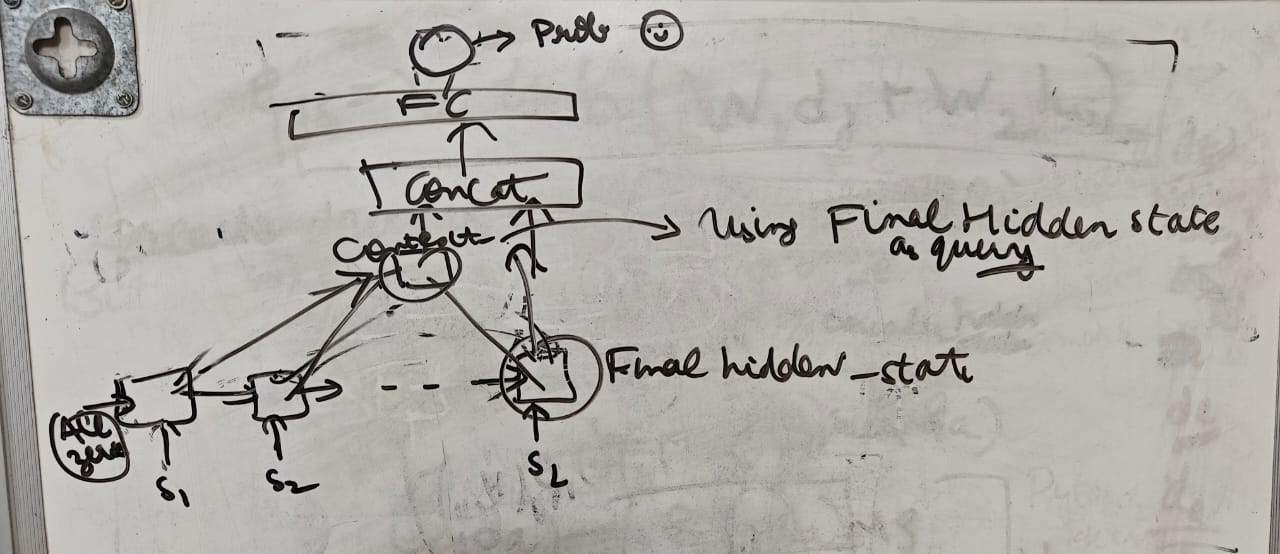 Prob
FC
Concat
Context
Using Final Hidden state
as query
Final hidden-state
All
zero
S1
S2
SL
(W1d, + W2h